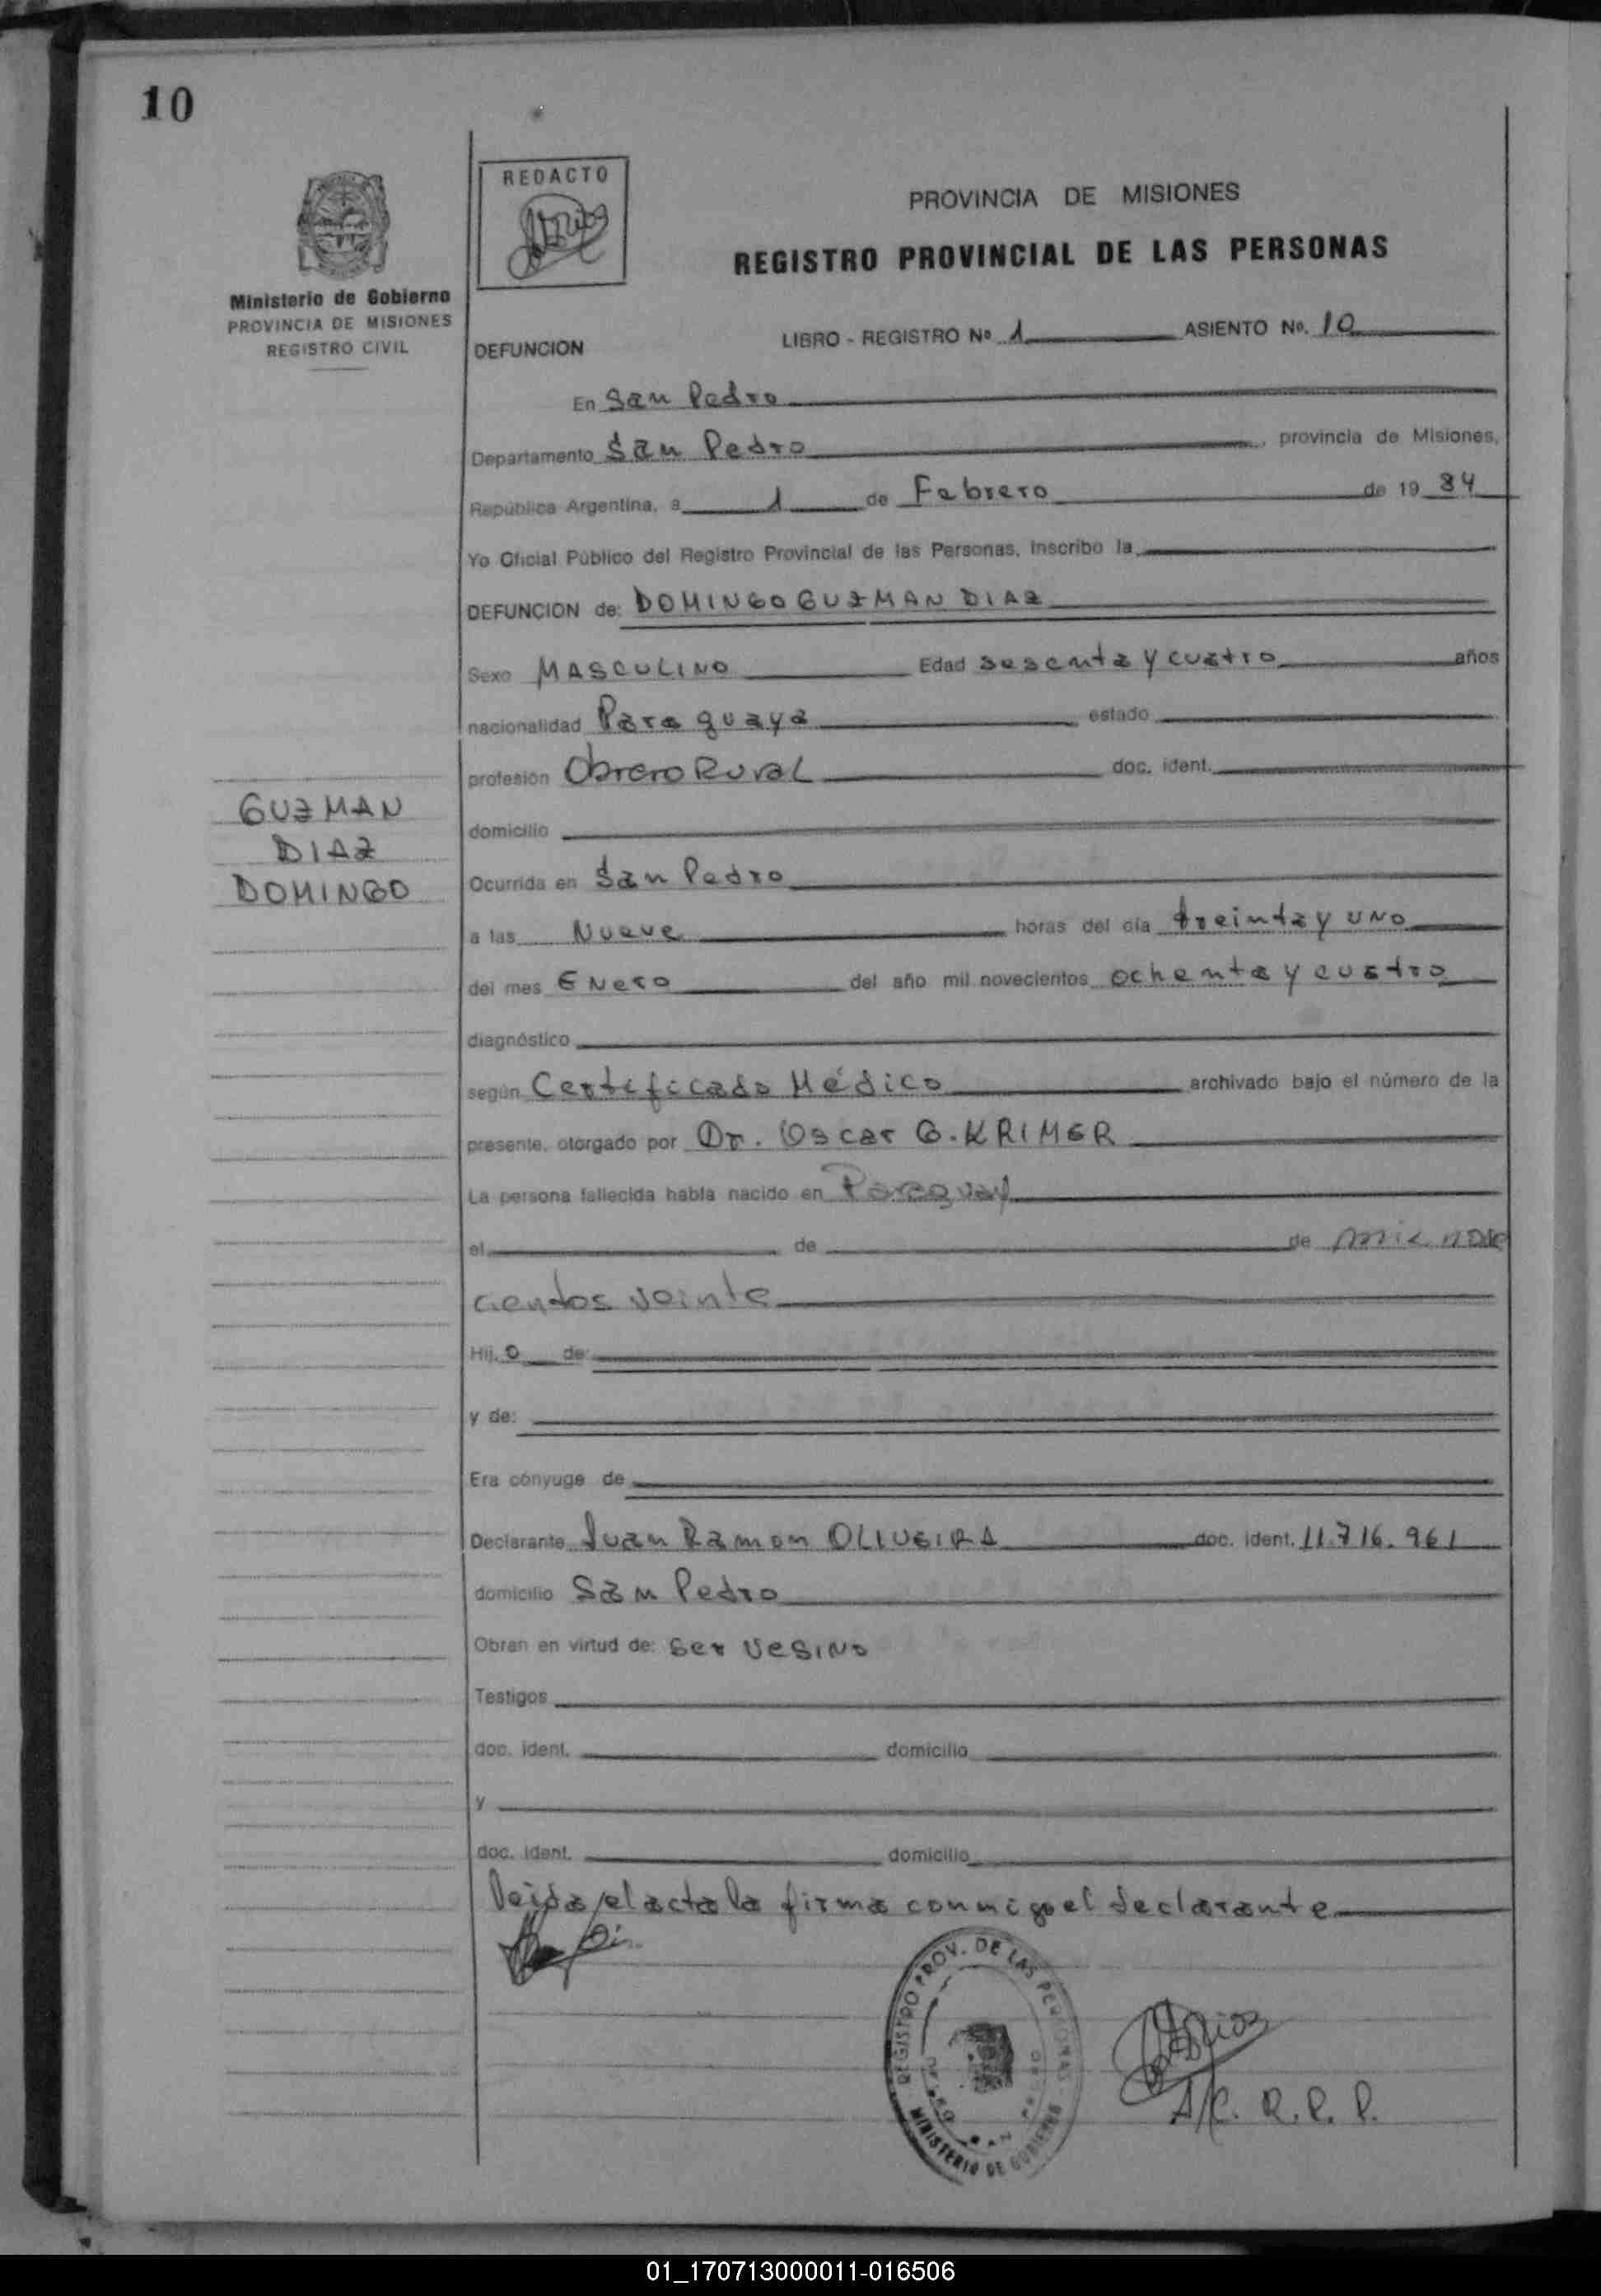 10
REDACTO
PROVINCIA DE MISIONES
REGISTRO PROVINCIAL DE LAS PERSONAS
Ministerio de Gobierno
PROVINCIA DE MISIONES
REGISTRO CIVIL
DEFUNCION LIBRO - REGISTRO Nº 1 ASIENTO No. 10
En San Pedro
Departamento San Pedro, provincia de Misiones,
República Argentina, a 1 de Febrero de 19 84
Yo Oficial Público del Registro Provincial de las Personas, inscribo la
DEFUNCION de: DOMINGO GUZMAN DIAZ
Sexo MASCULINO Edad sesenta y cuatro años
nacionalidad Paraguaya estado
profesión Obrero Rural doc. ident.
GUZMAN
DIAZ
DOMINGO
domicilio
Ocurrida en San Pedro
a las Nueve horas del día treinta y uno
del mes Enero del año mil novecientos ochenta y cuatro
diagnóstico
según Certificado Médico archivado bajo el número de la
presente, otorgado por Dr. Oscar G. KRIMER
La persona fallecida había nacido en Paraguay
el de de mil nove
cientos veinte
Hij o de:
y de:
Era cónyuge de
Declarante Juan Ramon OLIVEIRA doc. ident. 11.716.961
domicilio San Pedro
Obran en virtud de: ser vesino
Testigos
doc. ident. domicilio
y
doc. ident. domicilio
Leida el acta la firma conmigo el declarante
REGISTRO PROV. DE LAS PERSONAS
MINISTERIO DE GOBIERNO
A/C. R.P.P.
01_170713000011-016506